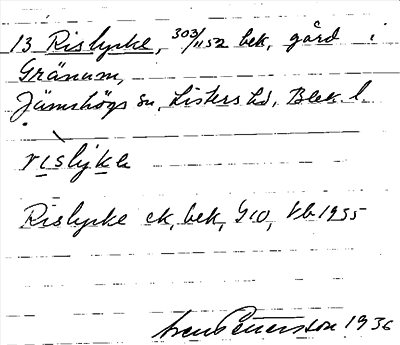 13 Rislycke, 303/1152 bek, gård i
Gränum,
Jämshögs sn, Listers hd, Blek. l.
rislykε
Rislycke ek, bek, G10, Kb 1955
Sven Petersson 1936